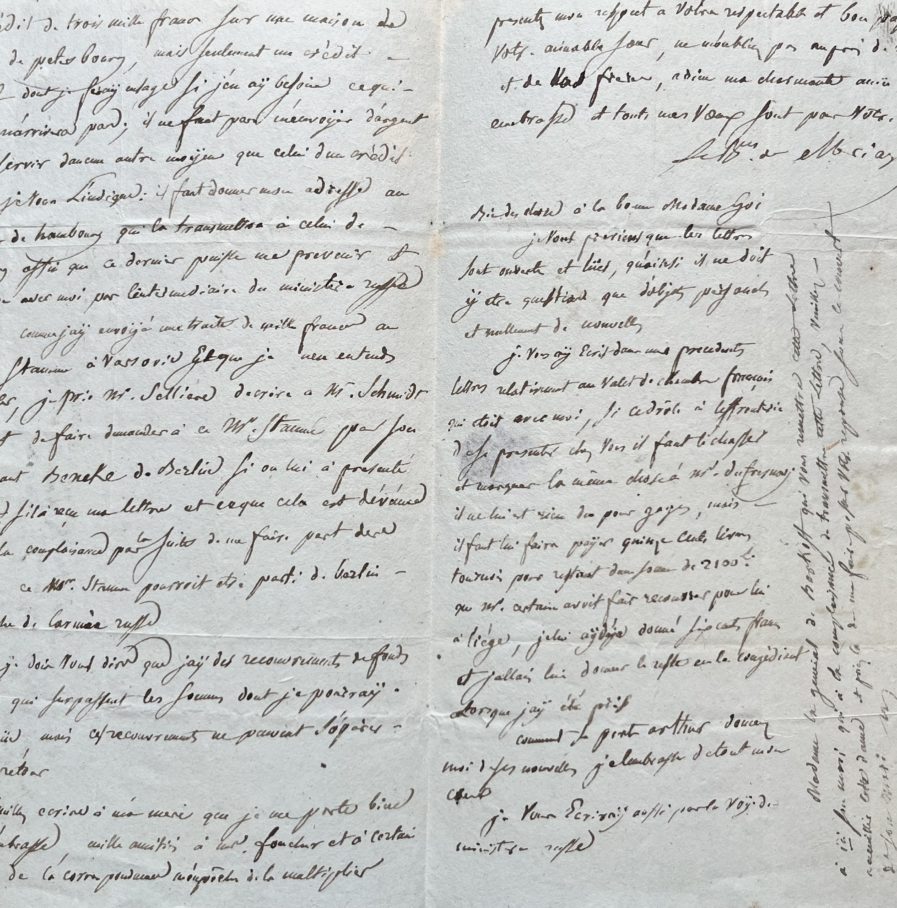 édit de trois mille francs sur une maison de
de petersbourg, mais seulement un crédit
dont je feray usage si j'en aÿ besoin ce qui
n'arrivera pas; il ne faut pas m'envoyer d'argent
servir d'aucun autre moyen que celui d'un crédit
je vous l'indique: il faut donner mon adresse au
de hambourg qui la transmettra à celui de
affin que ce dernier puisse me prevenir et
avec moi par l'intermediaire du ministere russe
comme jay envoyé une traite de mille francs au
Stamm à Varsovie et que je n'en entends
je prie Mr. Sellière d'ecrire a Mr. Schmidt
de faire demander à ce Mr. Stamm par son
Beneke de Berlin si on lui a presenté
s'il a recu ma lettre et ce que cela est dévénu
la complaisance par la suite de me faire part de
ce Mr. Stamm pourroit etre parti de berlin
de l'armée russe
je dois vous dire que jaÿ des recouvrements de fonds
qui surpassent les sommes dont je pourraÿ
mais ces recouvrements ne peuvent s'opérer
rétour
ecrire à ma mere que je me porte bien
mille amitiés à mr. foucher et à certain
de la correspondance m'empêche de la multiplier
presentez mon respect a votre respectable et bon
votre aimable soeur, ne m'oubliez pas aupres de
et de vos freres, adieu ma charmante amie
embrasse et touts mes voeux sont pour votre
de
Bien des choses à la bonne Madame
je vous previens que les lettres
sont ouverte et lües, qu'ainsi il ne doit
ÿ etre question que d'objets personels
et nullement de nouvelles
je vous aÿ Ecrit dans une precedents
lettres relativement au valet de chambre francois
qui étoit avec moi, si ce drôle à l'effronterie
de se presenter chez vous il faut le chasser
et marquer la même chose à mr. dufresnoy
il ne lui est rien du pour gages, mais
il faut lui faire payer quinze cents livres
tournois pour restant d'un somme de 2100 #
que mr. certain avoit fait recouvrer pour lui
à liége, je lui aÿ déja donné six cents francs
et j'allais lui donner le reste en le congédiant
Lorsque jaÿ été pris
comment se porte arthur donnez
moi de ses nouvelles je l'embrasse de tout mon
coeur
je vous Ecriraÿ aussi par la voÿe de
ministere russe
Madame la general de qui vous remettra cette lettre
à la complaisance de transmettre cette lettre, veuillez
accueillir cette dame et de me faire passer votre reponse sous ce couvert